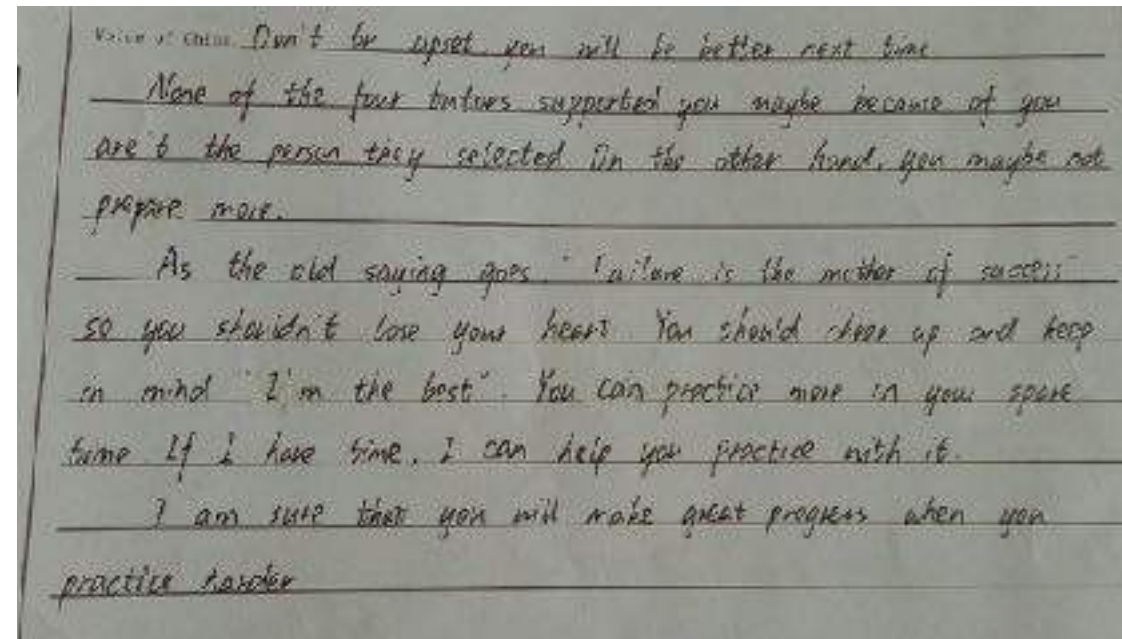 Voice of China. Don't be upset you will be better next time
None of the four tutors supported you maybe because of you
are't the person they selected On the other hand, you maybe not
prepare more.
As the old saying goes. "Failure is the mother of success"
so you shouldn't lose your heart You should cheer up and keep
in mind "I'm the best". You can practice more in your spare
time If I have time, I can help you practice with it.
I am sure that you will make great progress when you
practice harder